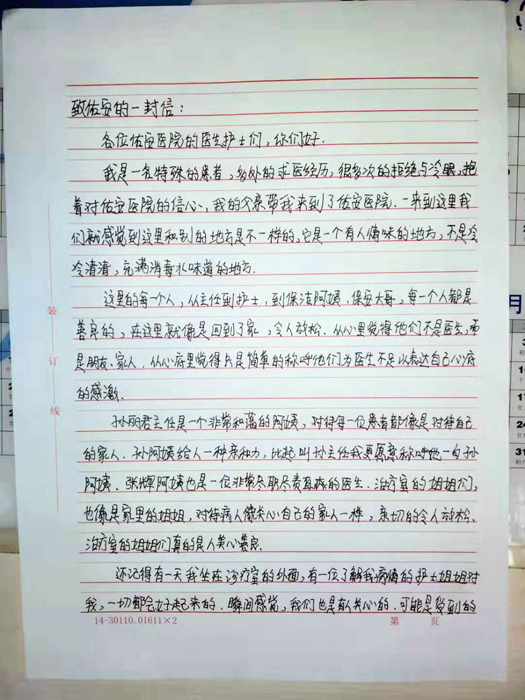 致佑安的一封信：
各位佑安医院的医生护士们，你们好.
我是一名特殊的患者，多处的求医经历，很多次的拒绝与冷眼，抱
着对佑安医院的信心，我的父亲带我来到了佑安医院.一来到这里我
们就感觉到这里和别的地方是不一样的，它是一个有人情味的地方，不是冷
冷清清，充满消毒水味道的地方.
这里的每一个人，从主任到护士，到保洁阿姨、保安大哥，每一个人都是
善良的，在这里就像是回到了家，令人放松.从心里觉得他们不是医生，而
是朋友、家人.从心府里觉得只是简单的称呼他们为医生不足以表达自己心府
的感激.
孙丽君主任是一个非常和蔼的阿姨，对待每一位患者都像是对待自己
的家人.孙阿姨给人一种亲和力，比起叫孙主任我更愿意称呼他一句孙
阿姨.张 阿姨也是一位非常尽职尽责 的医生.治疗室的姐姐们，
也像是家里的姐姐，对待病人像关心自己的家人一样，亲切的令人放松.
治疗室的姐姐们真的是人美心善良.
还记得有一天我坐在诊疗室的外面，有一位了解我病情的护士姐姐对
我，一切都会好起来的.瞬间感觉，我们也是有人关心的.可能是受到的
装
订
线
14-30110.01611×2
第 页
月